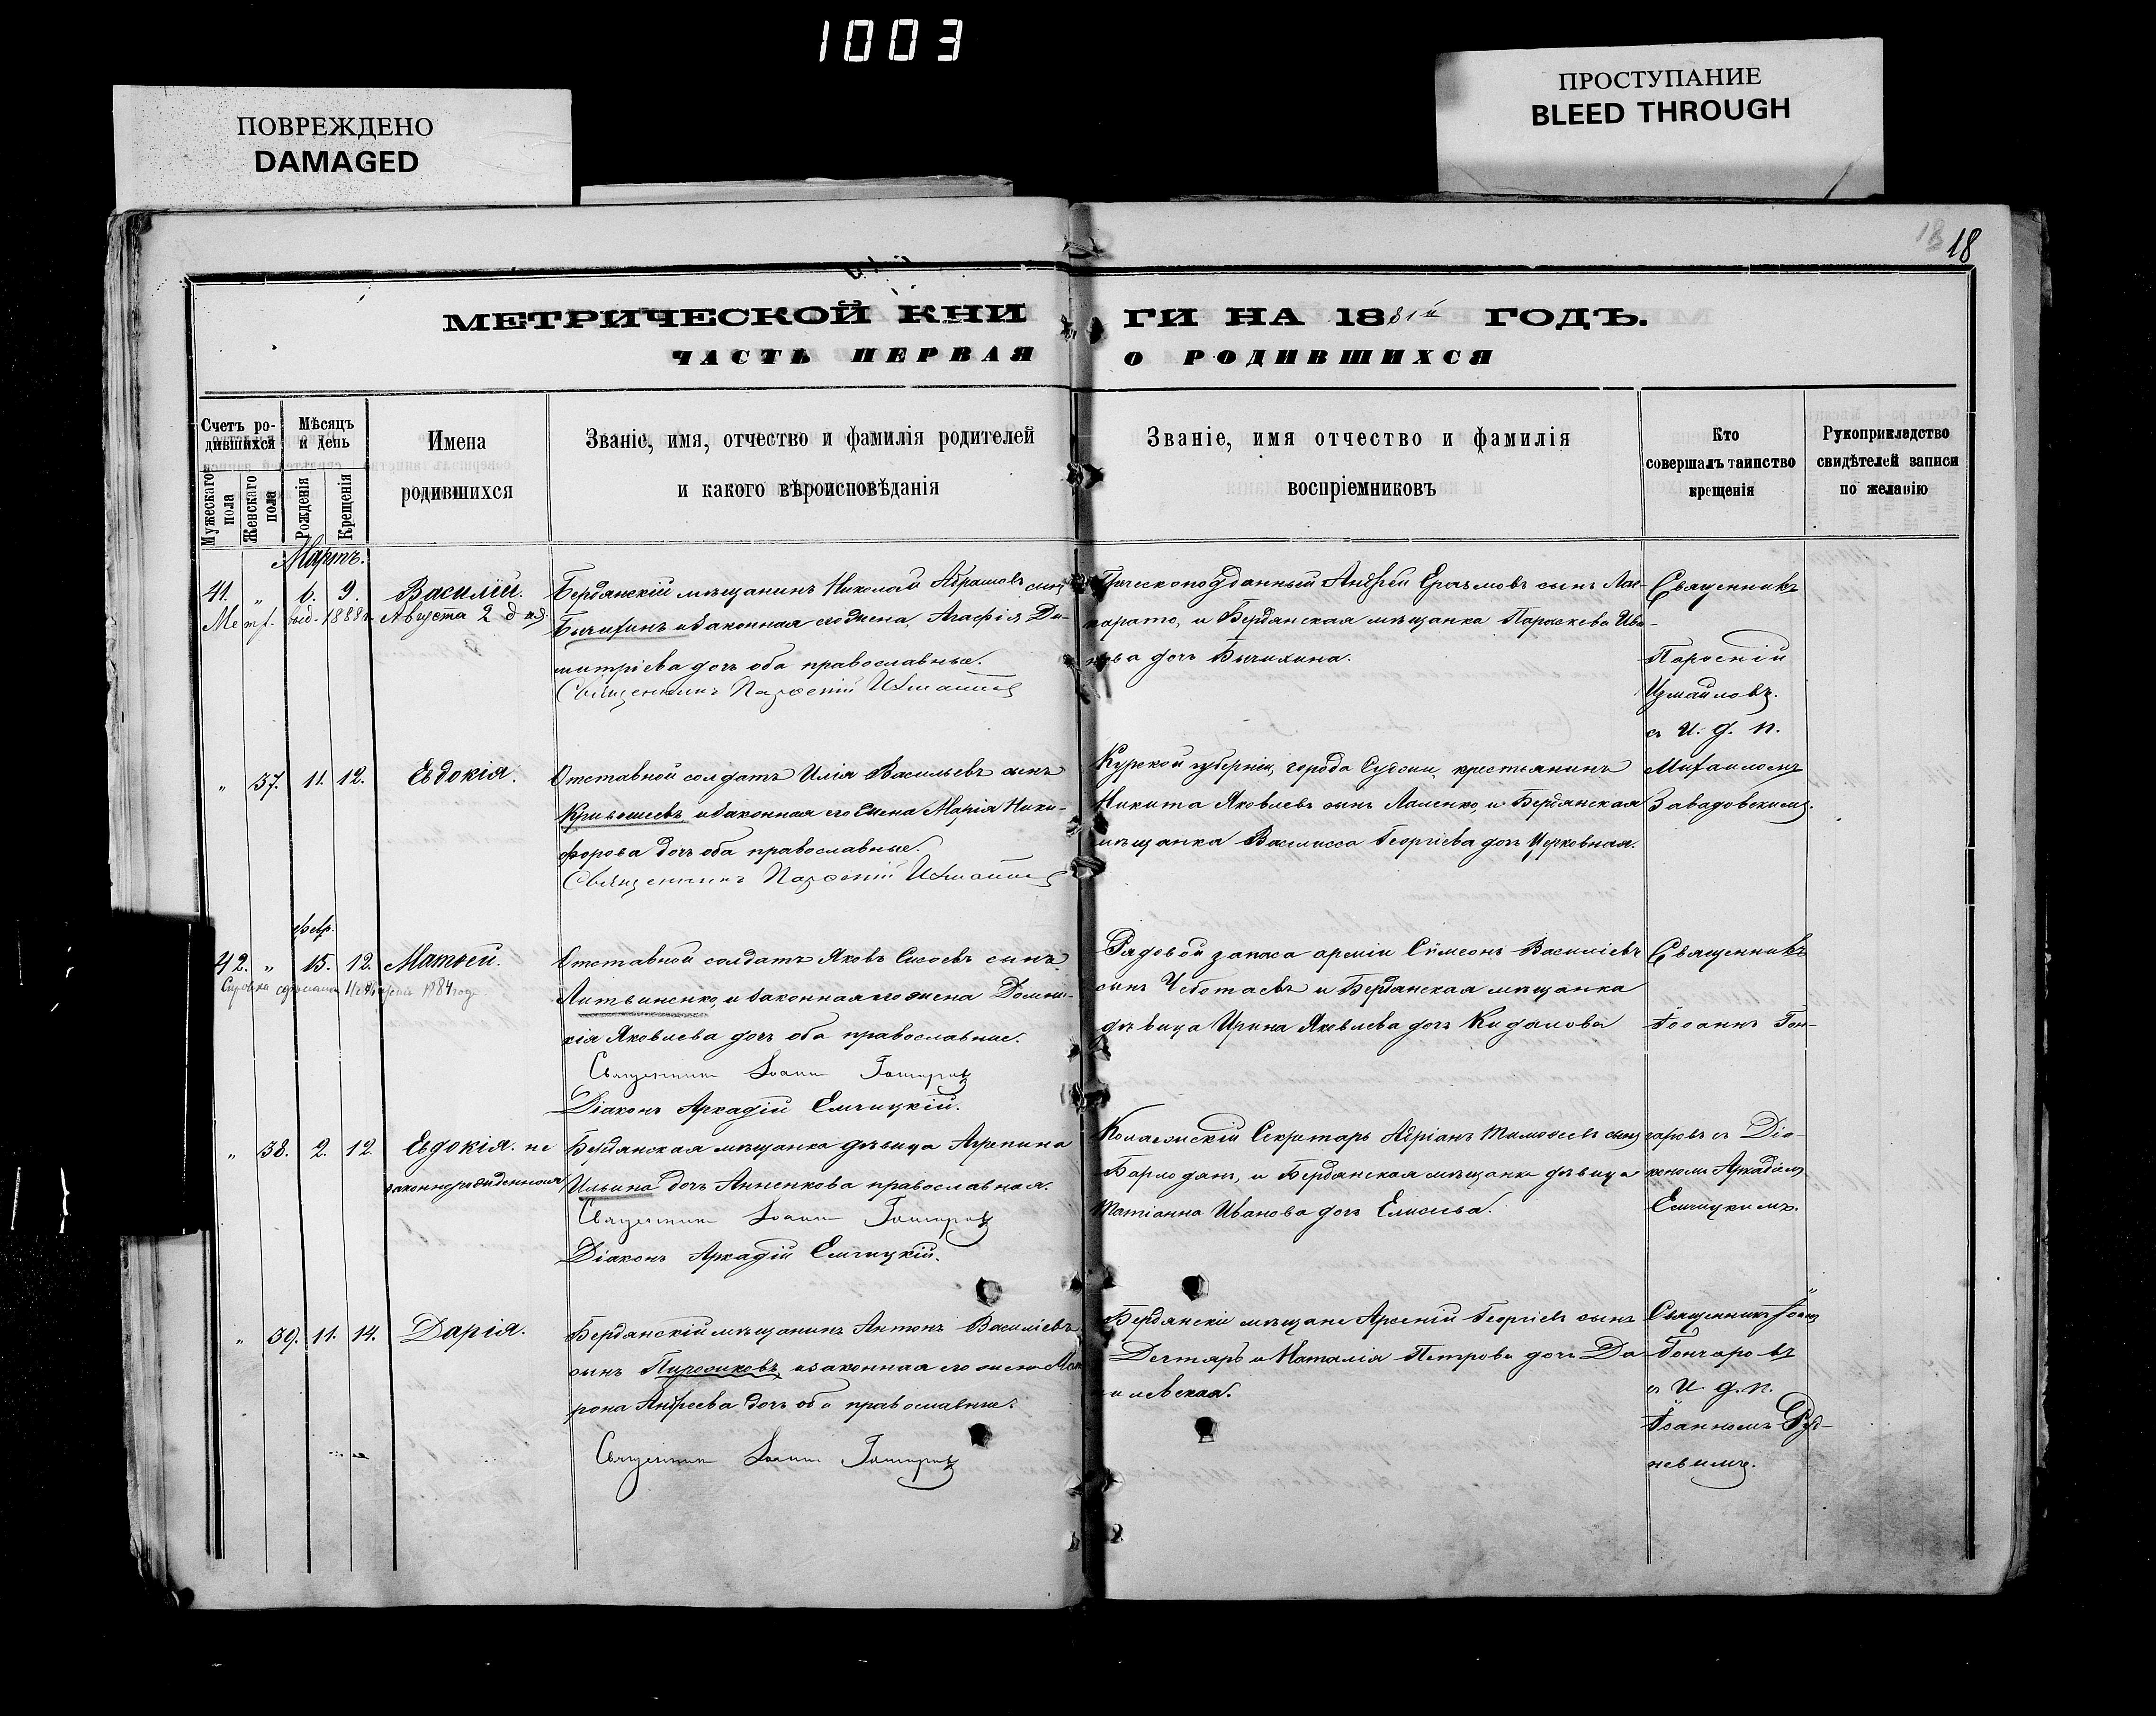 1003
ПОВРЕЖДЕНО
DAMAGED
ПРОСТУПАНИЕ
BLEED THROUGH
18
МЕТРИЧЕСКОЙ КНИ
ГИ НА 1881й ГОДЪ.
ЧАСТЬ ПЕРВАЯ
О РОДИВШИХСЯ
Счетъ ро-
дившихся
Мужескаго пола
Женскаго пола
Мѣсяцъ
и день
Рожденія
Крещенія
Имена
родившихся
Званіе, имя, отчество и фамилія родителей
и какого вѣроисповѣданія
Званіе, имя отчество и фамилія
воспріемниковъ
Кто
совершалъ таинство
крещенія
Рукоприкладство
свидѣтелей записи
по желанію
Мартъ.
41. " 6. 9. Василій.
Метр. выд. 1888г. Августа 2 дня
Бердянскій мѣщанинъ Николай Абрамовъ сынъ
Бычихинъ и законная его жена, Агафія Ди-
митріева дочь оба православные.
Священникъ Парѳеній Измаиловъ
Грческоподданный Андрей
и Бердянская мѣщанка Параскева Ива-
нова дочь Бычихина.
Священникъ
Парѳеній
Измаиловъ.
съ И. д. п.
" 37. 11. 12. Евдокія.
Отставной солдатъ Илія Васильевъ сынъ
Кривошеевъ и законная его жена Марія Ники-
форова дочь оба православные.
Священникъ Парѳеній Измаиловъ
Курской губерніи, города Суджи, крестьянинъ
Никита Яковлевъ сынъ и Бердянская
мѣщанка Василисса Георгіева дочь Церковная.
Михаиломъ
Завадовскимъ.
Февр.
42. " 15. 12. Матѳей.
Справка сдѣлана 1884 года
Отставной солдатъ Яковъ Сисоевъ сынъ
Литвиненко, и законная его жена Домни-
кія Яковлева дочь оба православные.
Священникъ Іоаннъ Гончаровъ
Діаконъ Аркадій Емчицкій.
Рядовой запаса арміи Сѵмеонъ Василіевъ
сынъ Чеботаевъ и Бердянская мѣщанка
дѣвица Ирина Яковлева дочь Кидалова
Священникъ
Іоаннъ Гон-
" 38. 2. 12. Евдокія. не
законнорожденная
Бердянская мѣщанка дѣвица Агрепина
Ильина дочь Анненкова православная.
Священникъ Іоаннъ Гончаровъ
Діаконъ Аркадій Емчицкій.
Коллежскій Секретарь Адріанъ Тимоѳеевъ сынъ
и Бердянская мѣщанка дѣвица
Татіанна Иванова дочь Елисѣева.
чаровъ съ Діа-
кономъ Аркадіемъ
Емчицкимъ.
" 39. 11. 14. Дарія.
Бердянскій мѣщанинъ Антонъ Василіевъ
сынъ и законная его жена Мат-
рона Андреева дочь оба православные.
Священникъ Іоаннъ Гончаровъ
Бердянскіе мѣщане Арсеній Георгіевъ сынъ
Дегтярь и Наталія Петрова дочь Да-
нилевская.
Священникъ Іоаннъ
Гончаровъ
съ И. д. п.
Іоанномъ Руд-
невымъ.